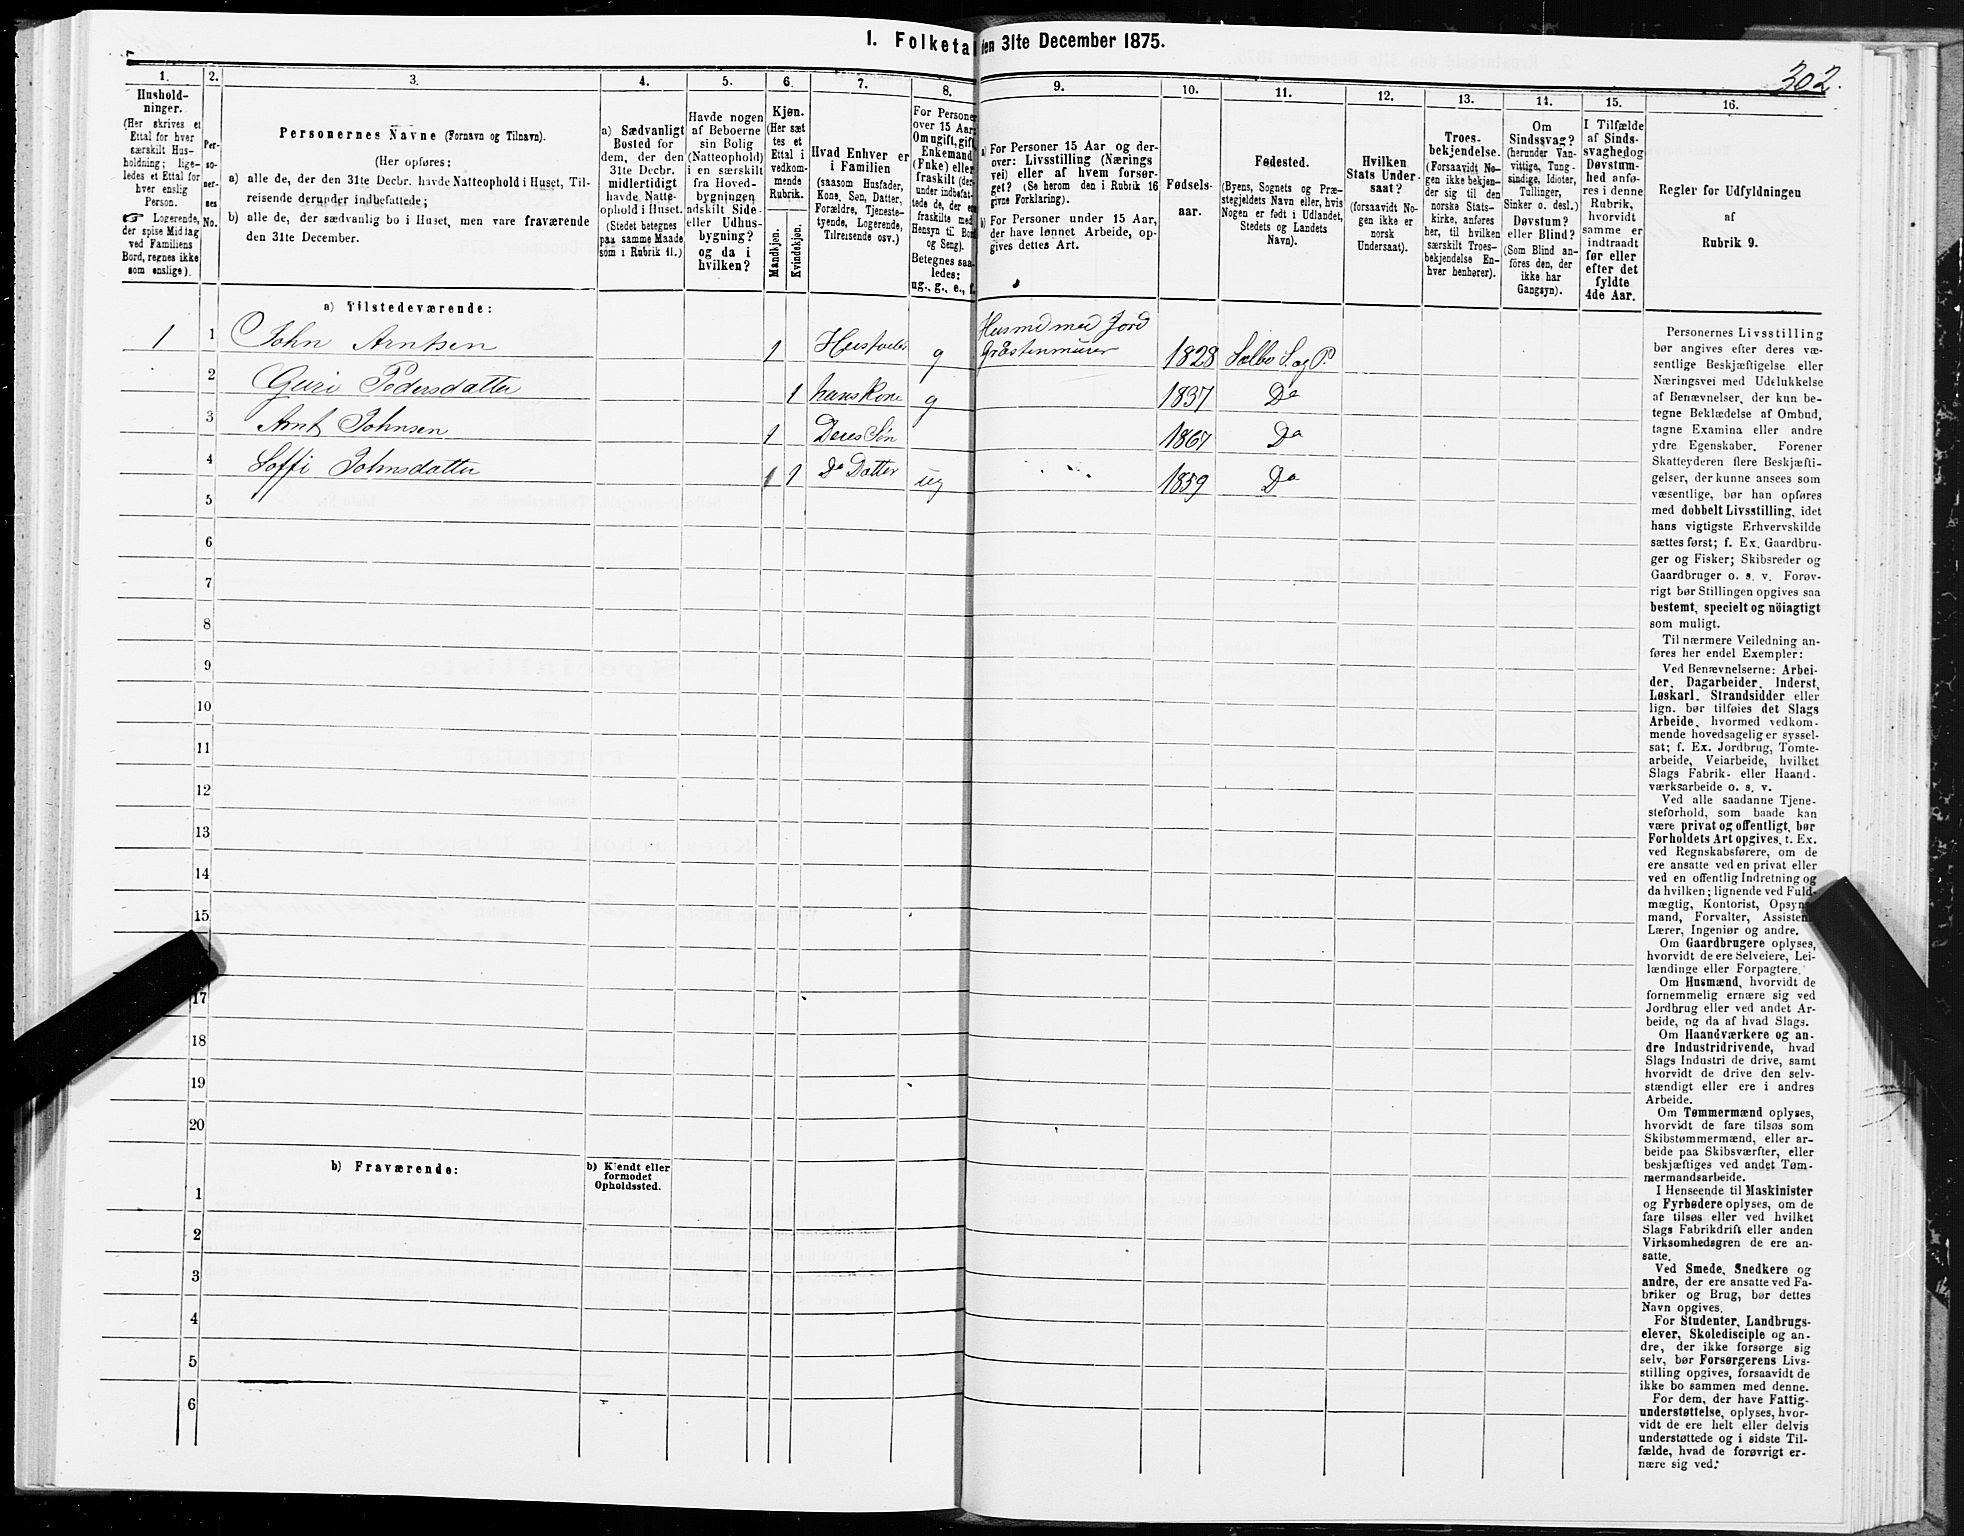 I. Folketal den 31te December 1875.
302.
1.
Hushold-
ninger.
(Her skrives et
Ettal for hver
særskilt Hus-
holdning; lige-
ledes et Ettal for
hver enslig
Person.
☞ Logerende,
der spise Middag
ved Familiens
Bord, regnes ikke
som enslige).
2.
Per-
so-
ner-
nes
No.
3.
Personernes Navne (Fornavn og Tilnavn).
(Her opføres:
a) alle de, der den 31te Decbr. havde Natteophold i Huset, Til-
reisende derunder indbefattede;
b) alle de, der sædvanlig bo i Huset, men vare fraværende
den 31te December.
4.
a) Sædvanligt
Bosted for
dem, der den
31te Decbr.
midlertidigt
havde Natte-
ophold i Huset.
(Stedet betegnes
paa samme Maade
som i Rubrik 11.)
5.
Havde nogen
af Beboerne
sin Bolig
(Natteophold)
i en særskilt
fra Hoved-
bygningen
adskilt Side-
eller Udhus-
bygning?
og da i
hvilken?
6.
Kjøn.
(Her sæt
tes et
Ettal i
vedkom-
mende
Rubrik.
Mandkjøn.
Kvindekjøn.
7.
Hvad Enhver er
i Familien
(saasom Husfader,
Kone, Søn, Datter,
Forældre, Tjeneste-
tyende, Logerende,
Tilreisende osv.)
8.
For Personer
over 15 Aar:
Om ugift, gift,
Enkemand
(Enke) eller
fraskilt (der-
under indbefat-
tede de, der ere
fraskilte med
Hensyn til Bord
og Seng).
Betegnes saa-
ledes:
ug., g., e., f.
9.
a) For Personer 15 Aar og der-
over: Livsstilling (Nærings
vei) eller af hvem forsør-
get? (Se herom den i Rubrik 16
givne Forklaring).
b) For Personer under 15 Aar,
der have lønnet Arbeide, op-
gives dettes Art.
10.
Fødsels-
aar.
11.
Fødested.
(Byens, Sognets og Præ-
stegjeldets Navn eller, hvis
Nogen er født i Udlandet,
Stedets og Landets
Navn).
12.
Hvilken
Stats Under-
saat?
(forsaavidt No-
gen ikke er
norsk
Undersaat).
13.
Troes-
bekjendelse.
(Forsaavidt No-
gen ikke bekjen-
der sig til den
norske Stats-
kirke, anføres
her, til hvilken
særskilt Troes-
bekjendelse En-
hver henhører).
14.
Om
Sindssvag?
(herunder Van-
vittige, Tung-
sindige, Idioter,
Tullinger,
Sinker o. desl.)
Døvstum?
eller Blind?
(Som Blind an-
føres den, der
ikke har
Gangsyn).
15.
I Tilfælde
af Sinds-
svaghed og
Døvstum-
hed anfø-
res i denne
Rubrik,
hvorvidt
samme er
indtraadt
før eller
efter det
fyldte
4de Aar.
16.
Regler for Udfyldningen
af
Rubrik 9.
a) Tilstedeværende:
1 1 John Arntsen 1 Husfader g Husmd med Jord
Gråstenmurer 1828 Selbo S. og P.
2 Guri Pedersdatter 1 hans Kone g 1837 Do
3 Arnt Johnsen 1 Deres Søn 1867 Do
4 Soffi Johnsdatter 1 Do Datter ug 1859 Do
5
6
7
8
9
10
11
12
13
14
15
17
18
19
20
b) Fraværende:
b) Kjendt eller
formodet
Opholdssted.
1
2
3
4
5
6
Personernes Livsstilling
bør angives efter deres væ-
sentlige Beskjæftigelse eller
Næringsvei med Udelukkelse
af Benævnelser, der kun be-
tegne Beklædelse af Ombud,
tagne Examina eller andre
ydre Egenskaber. Forener
Skatteyderen flere Beskjæfti-
gelser, der kunne ansees som
væsentlige, bør han opføres
med dobbelt Livsstilling, idet
hans vigtigste Erhvervskilde
sættes først; f. Ex. Gaardbru-
ger og Fisker; Skibsreder og
Gaardbruger o. s. v. Forøv-
rigt bør Stillingen opgives saa
bestemt, specielt og nöiagtigt
som muligt.
Til nærmere Veiledning an-
føres her endel Exempler:
Ved Benævnelserne: Arbei-
der, Dagarbeider, Inderst,
Løskarl, Strandsidder eller
lign. bør tilføies det Slags
Arbeide, hvormed vedkom-
mende hovedsagelig er syssel-
sat; f. Ex. Jordbrug, Tomte-
arbeide, Veiarbeide, hvilket
Slags Fabrik- eller Haand-
værksarbeide o. s. v.
Ved alle saadanne Tjene-
steforhold, som baade kan
være privat og offentligt, bør
Forholdets Art opgives, t. Ex.
ved Regnskabsførere, om de
ere ansatte ved en privat eller
ved en offentlig Indretning og
da hvilken; lignende ved Fuld-
mægtig, Kontorist, Opsyns-
mand, Forvalter, Assistent,
Lærer, Ingeniør og andre.
Om Gaardbrugere oplyses,
hvorvidt de ere Selveiere, Lei-
lændinge eller Forpagtere.
Om Husmænd, hvorvidt de
fornemmelig ernære sig ved
Jordbrug eller ved andet Ar-
beide, og da af hvad Slags.
Om Haandværkere og an-
dre Industridrivende, hvad
Slags Industri de drive, samt
hvorvidt de drive den selv-
stændigt eller ere i andres
Arbeide.
Om Tømmermænd oplyses,
hvorvidt de fare tilsøs som
Skibstømmermænd, eller ar-
beide paa Skibsværfter, eller
beskjæftiges ved andet Tøm-
mermandsarbeide.
I Henseende til Maskinister
og Fyrbødere oplyses, om de
fare tilsøs eller ved hvilket
Slags Fabrikdrift eller anden
Virksomhedsgren de ere an-
satte.
Ved Smede, Snedkere og
andre, der ere ansatte ved Fa-
briker og Brug, bør dettes
Navn opgives.
For Studenter, Landbrugs-
elever, Skoledisciple og an-
dre, der ikke forsørge sig
selv, bør Forsørgerens Livs-
stilling opgives, forsaavidt de
ikke bo sammen med denne.
For dem, der have Fattig-
understøttelse, oplyses, hvor-
vidt de ere helt eller delvis
understøttede og i sidste Til-
fælde, hvad de forøvrigt er-
nære sig ved.